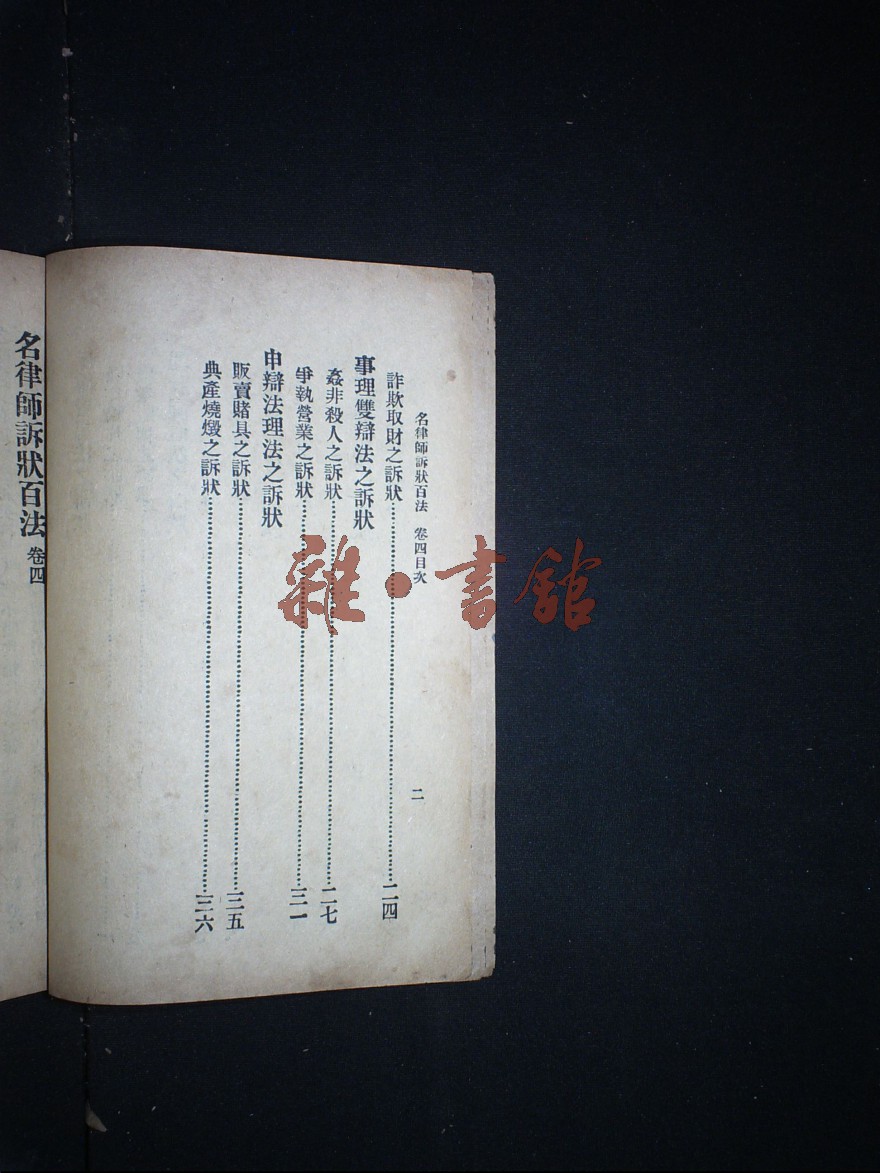 名律師訴狀百法 卷四目次
二
詐欺取財之訴狀……二四
事理雙辯法之訴狀
姦非殺人之訴狀……二七
爭執營業之訴狀……三一
申辯法理法之訴狀
販賣賭具之訴狀……三五
典產燒燬之訴狀……三六
名律師訴狀百法 卷四
雜·書館